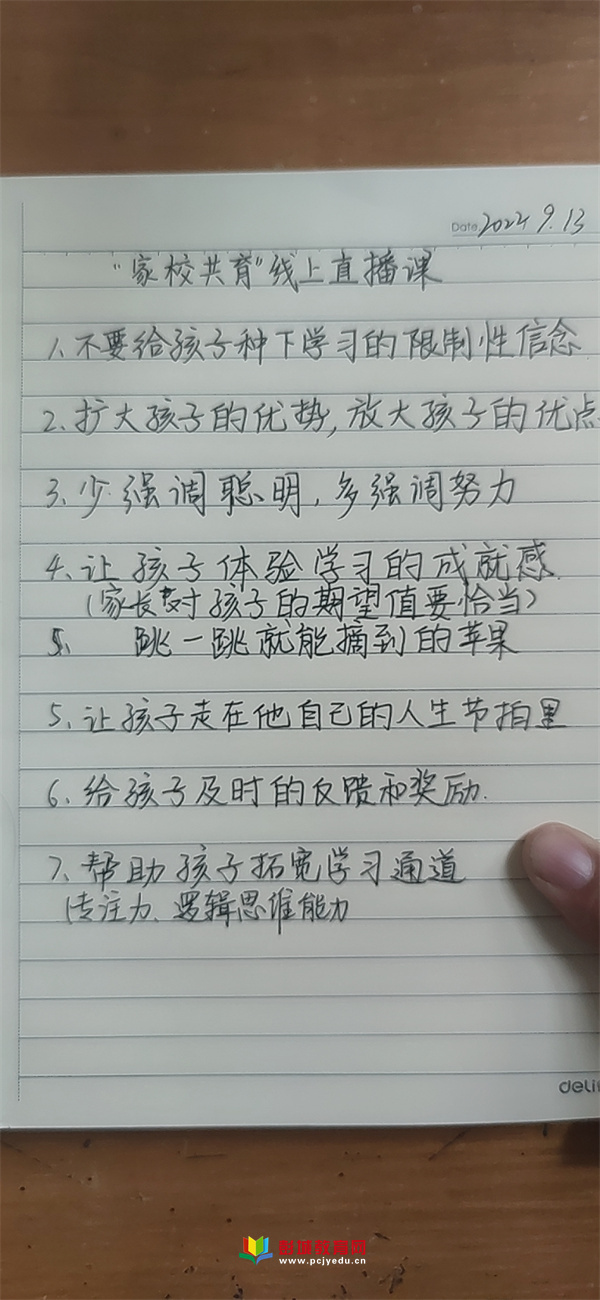 Date 2022 9.13
"家校共育"线上直播课
1、不要给孩子种下学习的限制性信念
2、扩大孩子的优势,放大孩子的优点
3、少强调聪明,多强调努力
4、让孩子体验学习的成就感
(家长对孩子的期望值要恰当)
5、 跳一跳就能摘到的苹果
5、让孩子走在他自己的人生节拍里
6、给孩子及时的反馈和奖励.
7、帮助孩子拓宽学习通道
(专注力、逻辑思维能力
deli
彭城教育网
www.pcjyedu.cn